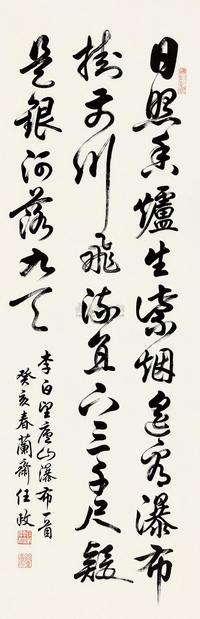 日照香爐生紫烟遙看瀑布
掛前川飛流直下三千尺疑
是銀河落九天
李白望廬山瀑布一首
癸亥春蘭齋任政